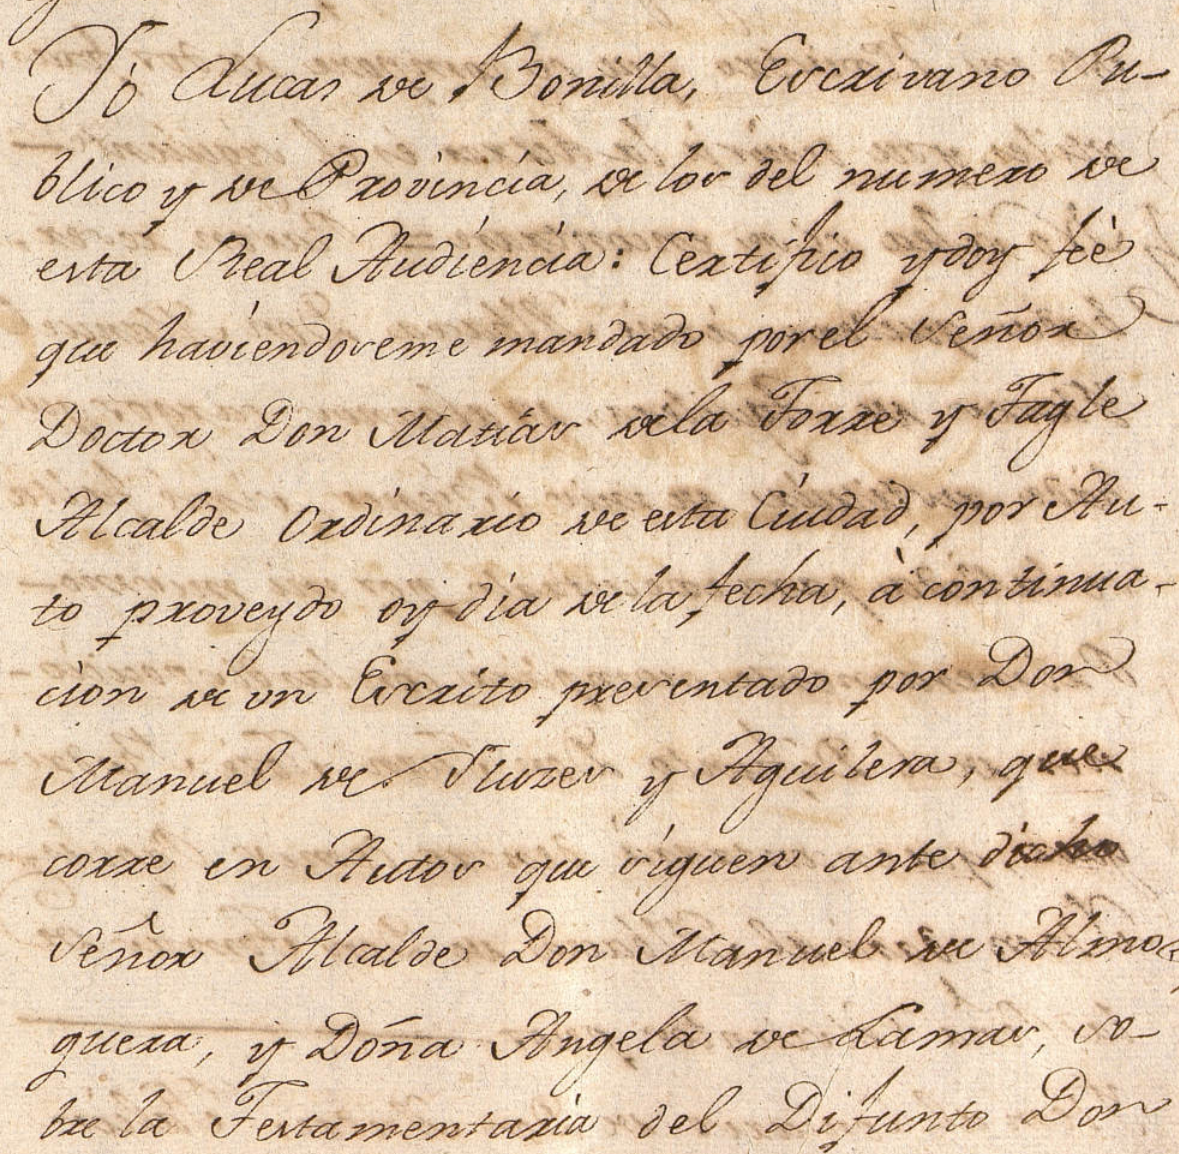 Yò Lucas de Bonilla, Escrivano Pu-
blico y de Provincia, de los del numero de
esta Real Audiencia: Certifico y doy feè
que haviendoseme mandado por el Señor
Doctor Don Matias de la Torre y Tagle
Alcalde Ordinario de esta Ciudad, por Au-
to proveydo oy dia de la fecha, à continua-
cion de un Escrito presentado por Don
Manuel de y Aguilera, que
corre en Autos que siguen ante dicho
Señor Alcalde Don Manuel de Almo-
guera, y Doña Angela de Lamas, so-
bre la Testamentaria del Difunto Don